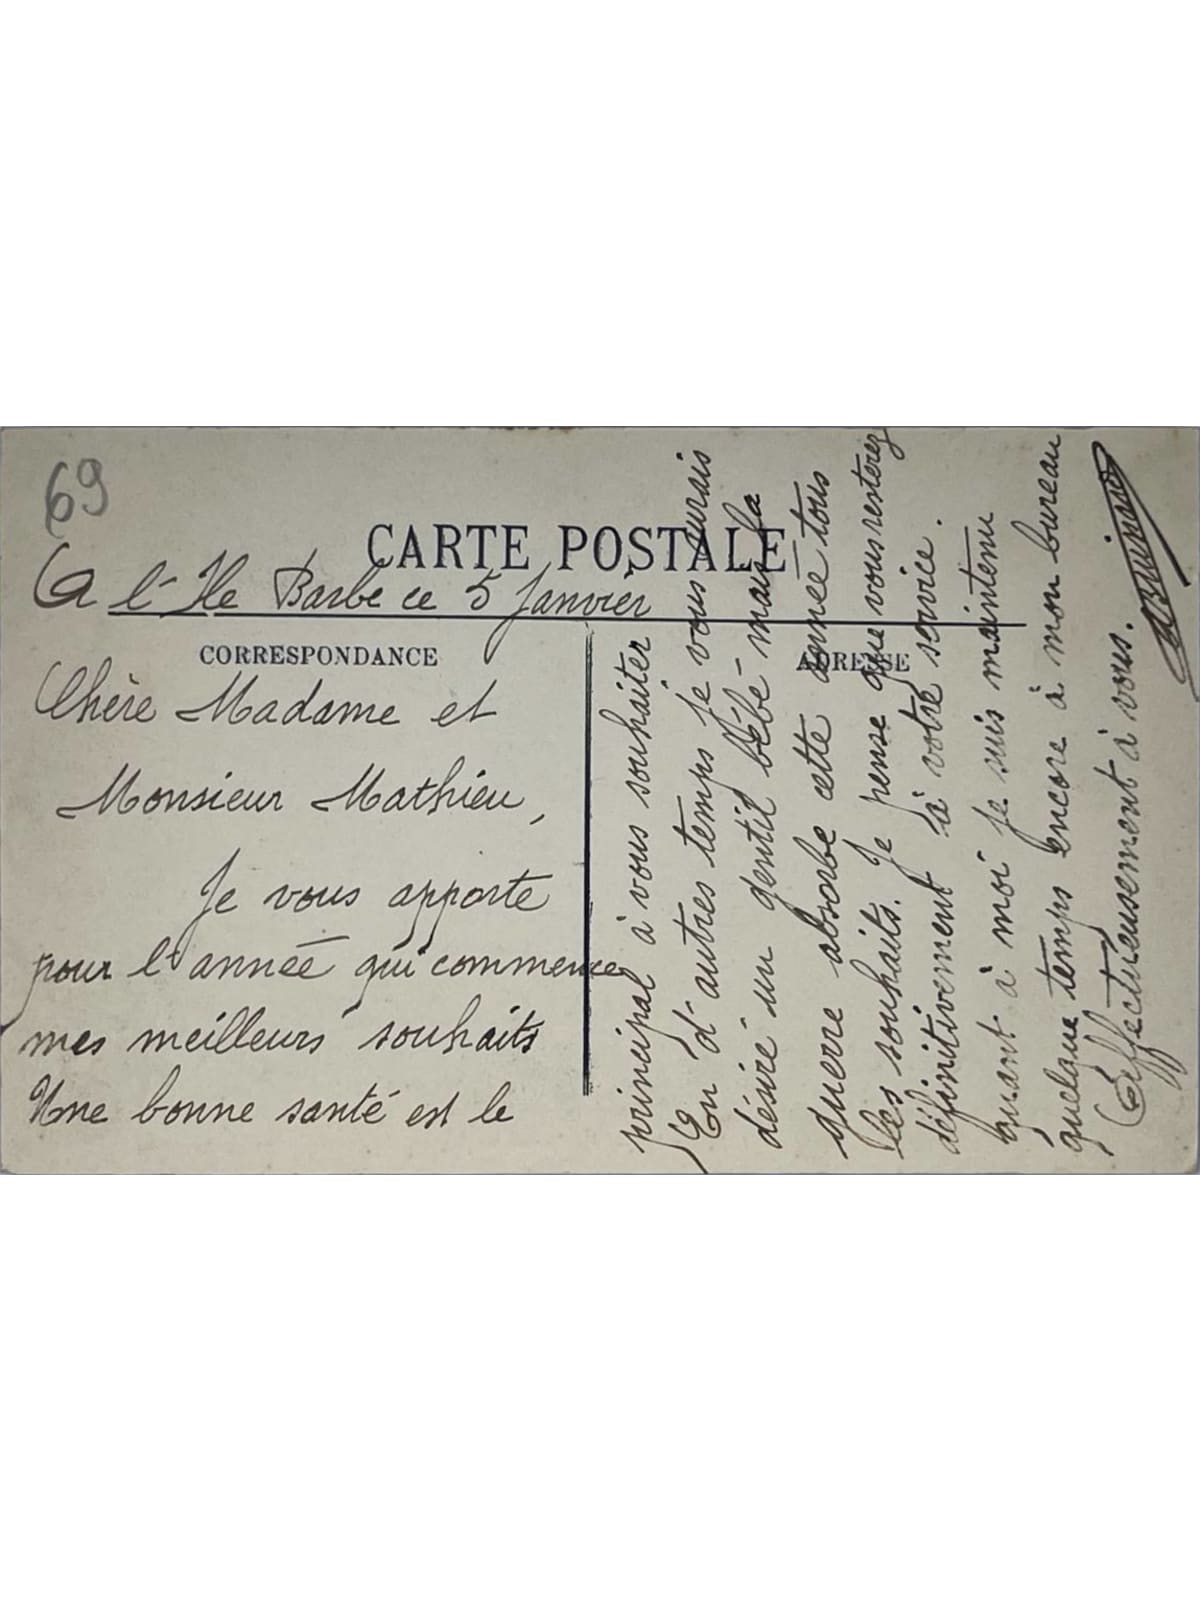 69
CARTE POSTALE
A l'Ile Barbe ce 5 Janvier
CORRESPONDANCE
ADRESSE
Chère Madame et
Monsieur Mathieu,
Je vous apporte
pour l'année qui commence
mes meilleurs souhaits
Une bonne santé est le
principal à vous souhaiter
En d'autres temps je vous aurais
désiré un gentil bébé - mais la
guerre absorbe cette année tous
les souhaits. Je pense que vous resterez
définitivement à votre service.
quant à moi je suis maintenu
quelque temps encore à mon bureau
Affectueusement à vous.